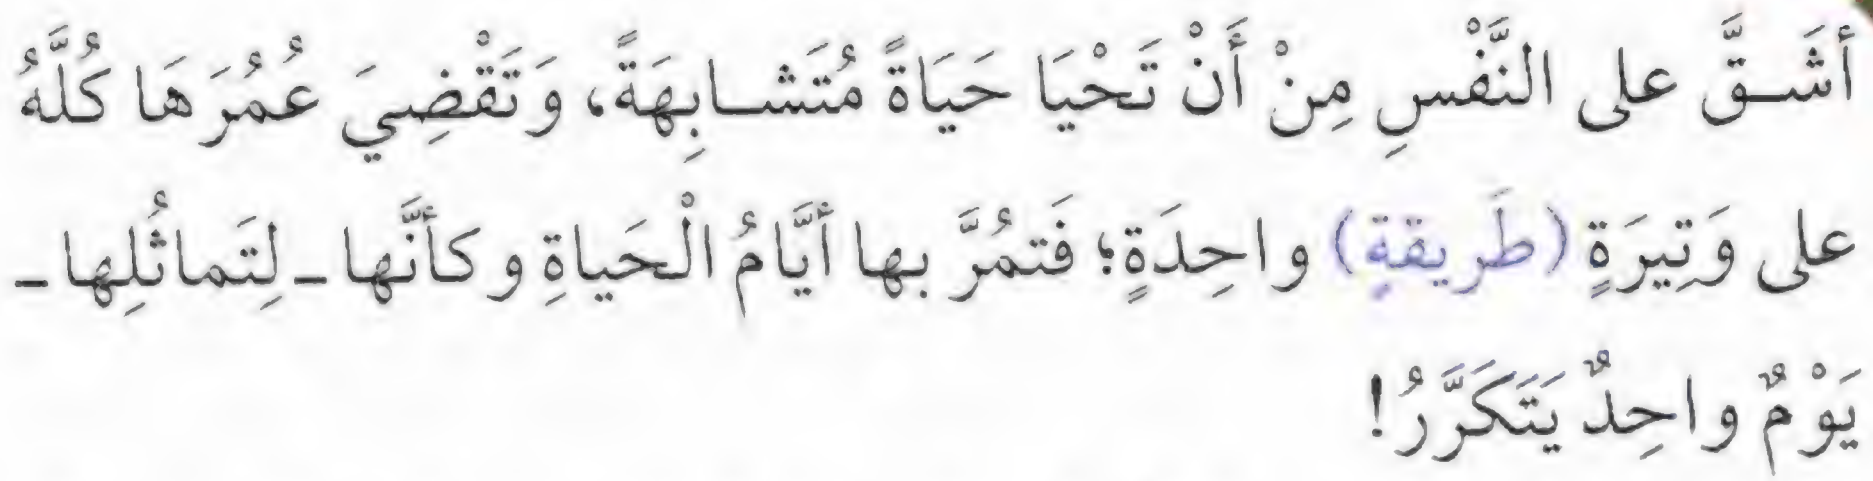 أَشَــقَّ على النَّفْسِ مِنْ أَنْ تَحْيَا حَيَاةً مُتَشــابِهَةً، وَتَقْضِيَ عُمُرَهَا كُلَّهُ
على وَتِيرَةٍ (طَريقةٍ) واحِدَةٍ؛ فَتمُرَّ بها أَيَّامُ الْحَياةِ وكأنَّها ـ لِتَماثُلِها ـ
يَوْمٌ واحِدٌ يَتَكَرَّرُ!